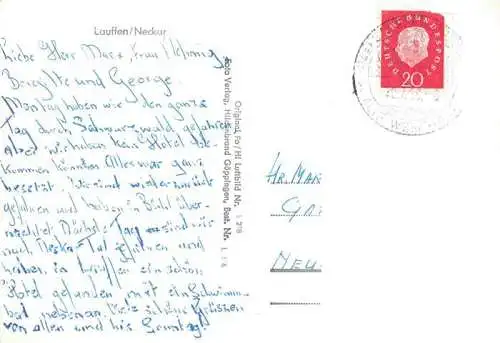 Lauffen/Neckar
Liebe Herr Max, Frau Helmig
Birgitte und George.
Montag haben wir den ganze
Tag durch Schwarzwald gefahren
Aber wir haben kein Hotel be-
kommen könnten. Alles war ganz
besetzt. Wir sind wieder zurück
gefahren und haben in Bühl über-
nachtet. Nächste Tag sind wir
nach Neckar Tal gefahren und
haben in Lauffen ein schön
Hotel gefunden mit ein Schwimm-
bad nebenan. Viele schöne Grüssen
von allen und bis Sonntag!
Original Fo/Hl Luftbild Nr. L 278
Foto Verlag, Hildenbrand Göppingen, Best. Nr. L 1 k
DEUTSCHE BUNDESPOST
20
HR. MAR
GA
NEU